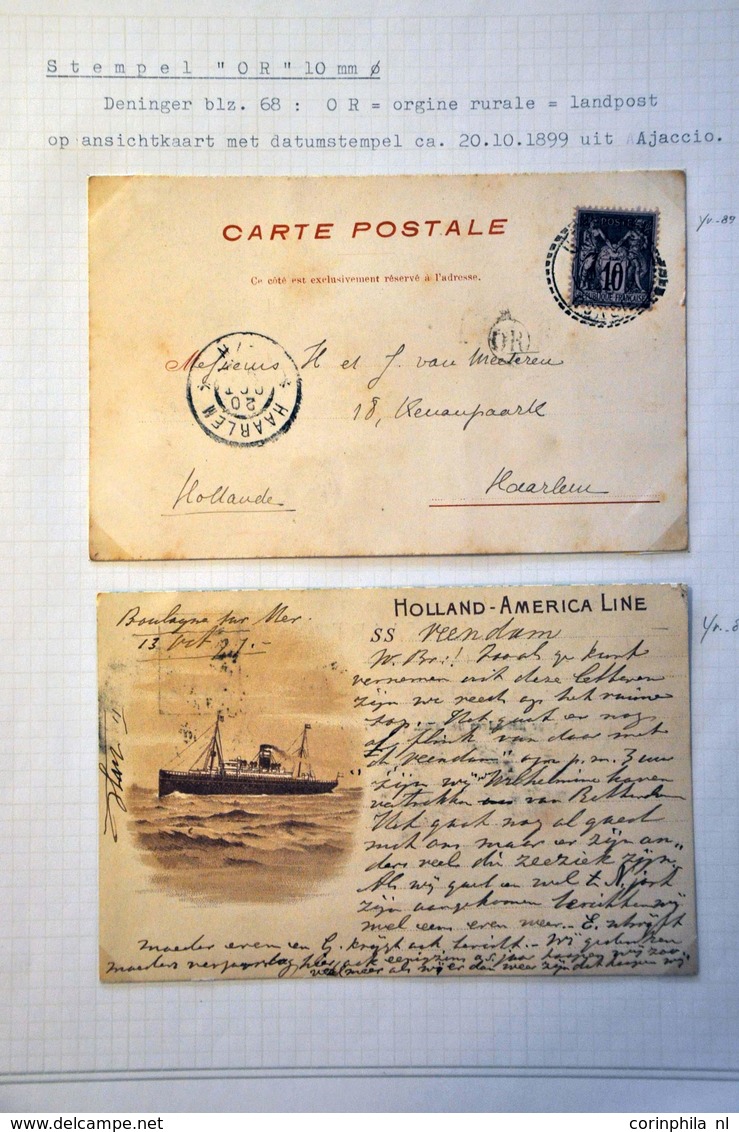 Stempel "OR" 10 mm ø
Deninger blz. 68 : O R = orgine rurale = landpost
op ansichtkaart met datumstempel ca. 20.10.1899 uit Ajaccio.
CARTE POSTALE
Ce côté est exclusivement réservé à l'adresse.
POSTE
10
RÉPUBLIQUE FRANÇAISE
Yv-89
OR
HAARLEM
20
OCT
Messieurs H et J. van Meeteren
18,
Haarlem
Hollande
HOLLAND-AMERICA LINE
SS Veendam
Boulogne sur Mer.
13 Oct
W. Br.! Zooals ge kunt
vernemen uit deze letteren
zijn we reeds op het ruime
sop. - Het gaat er nog
al flink van daar met
"Veendam" p.m. 3 uur
zijn wij Wilhelmina haven
vertrokken van
Het gaat nog al goed
met ons maar er zijn an-
ders veel die zeeziek zijn.
Als wij goed en wel t. N. jork
zijn aangekomen berichten wij
wel een even weer. - E. schrijft
moeder even en G. krijgt ook bericht. - Wij gedenken
moeders verjaardag hier ook
corinphila nl